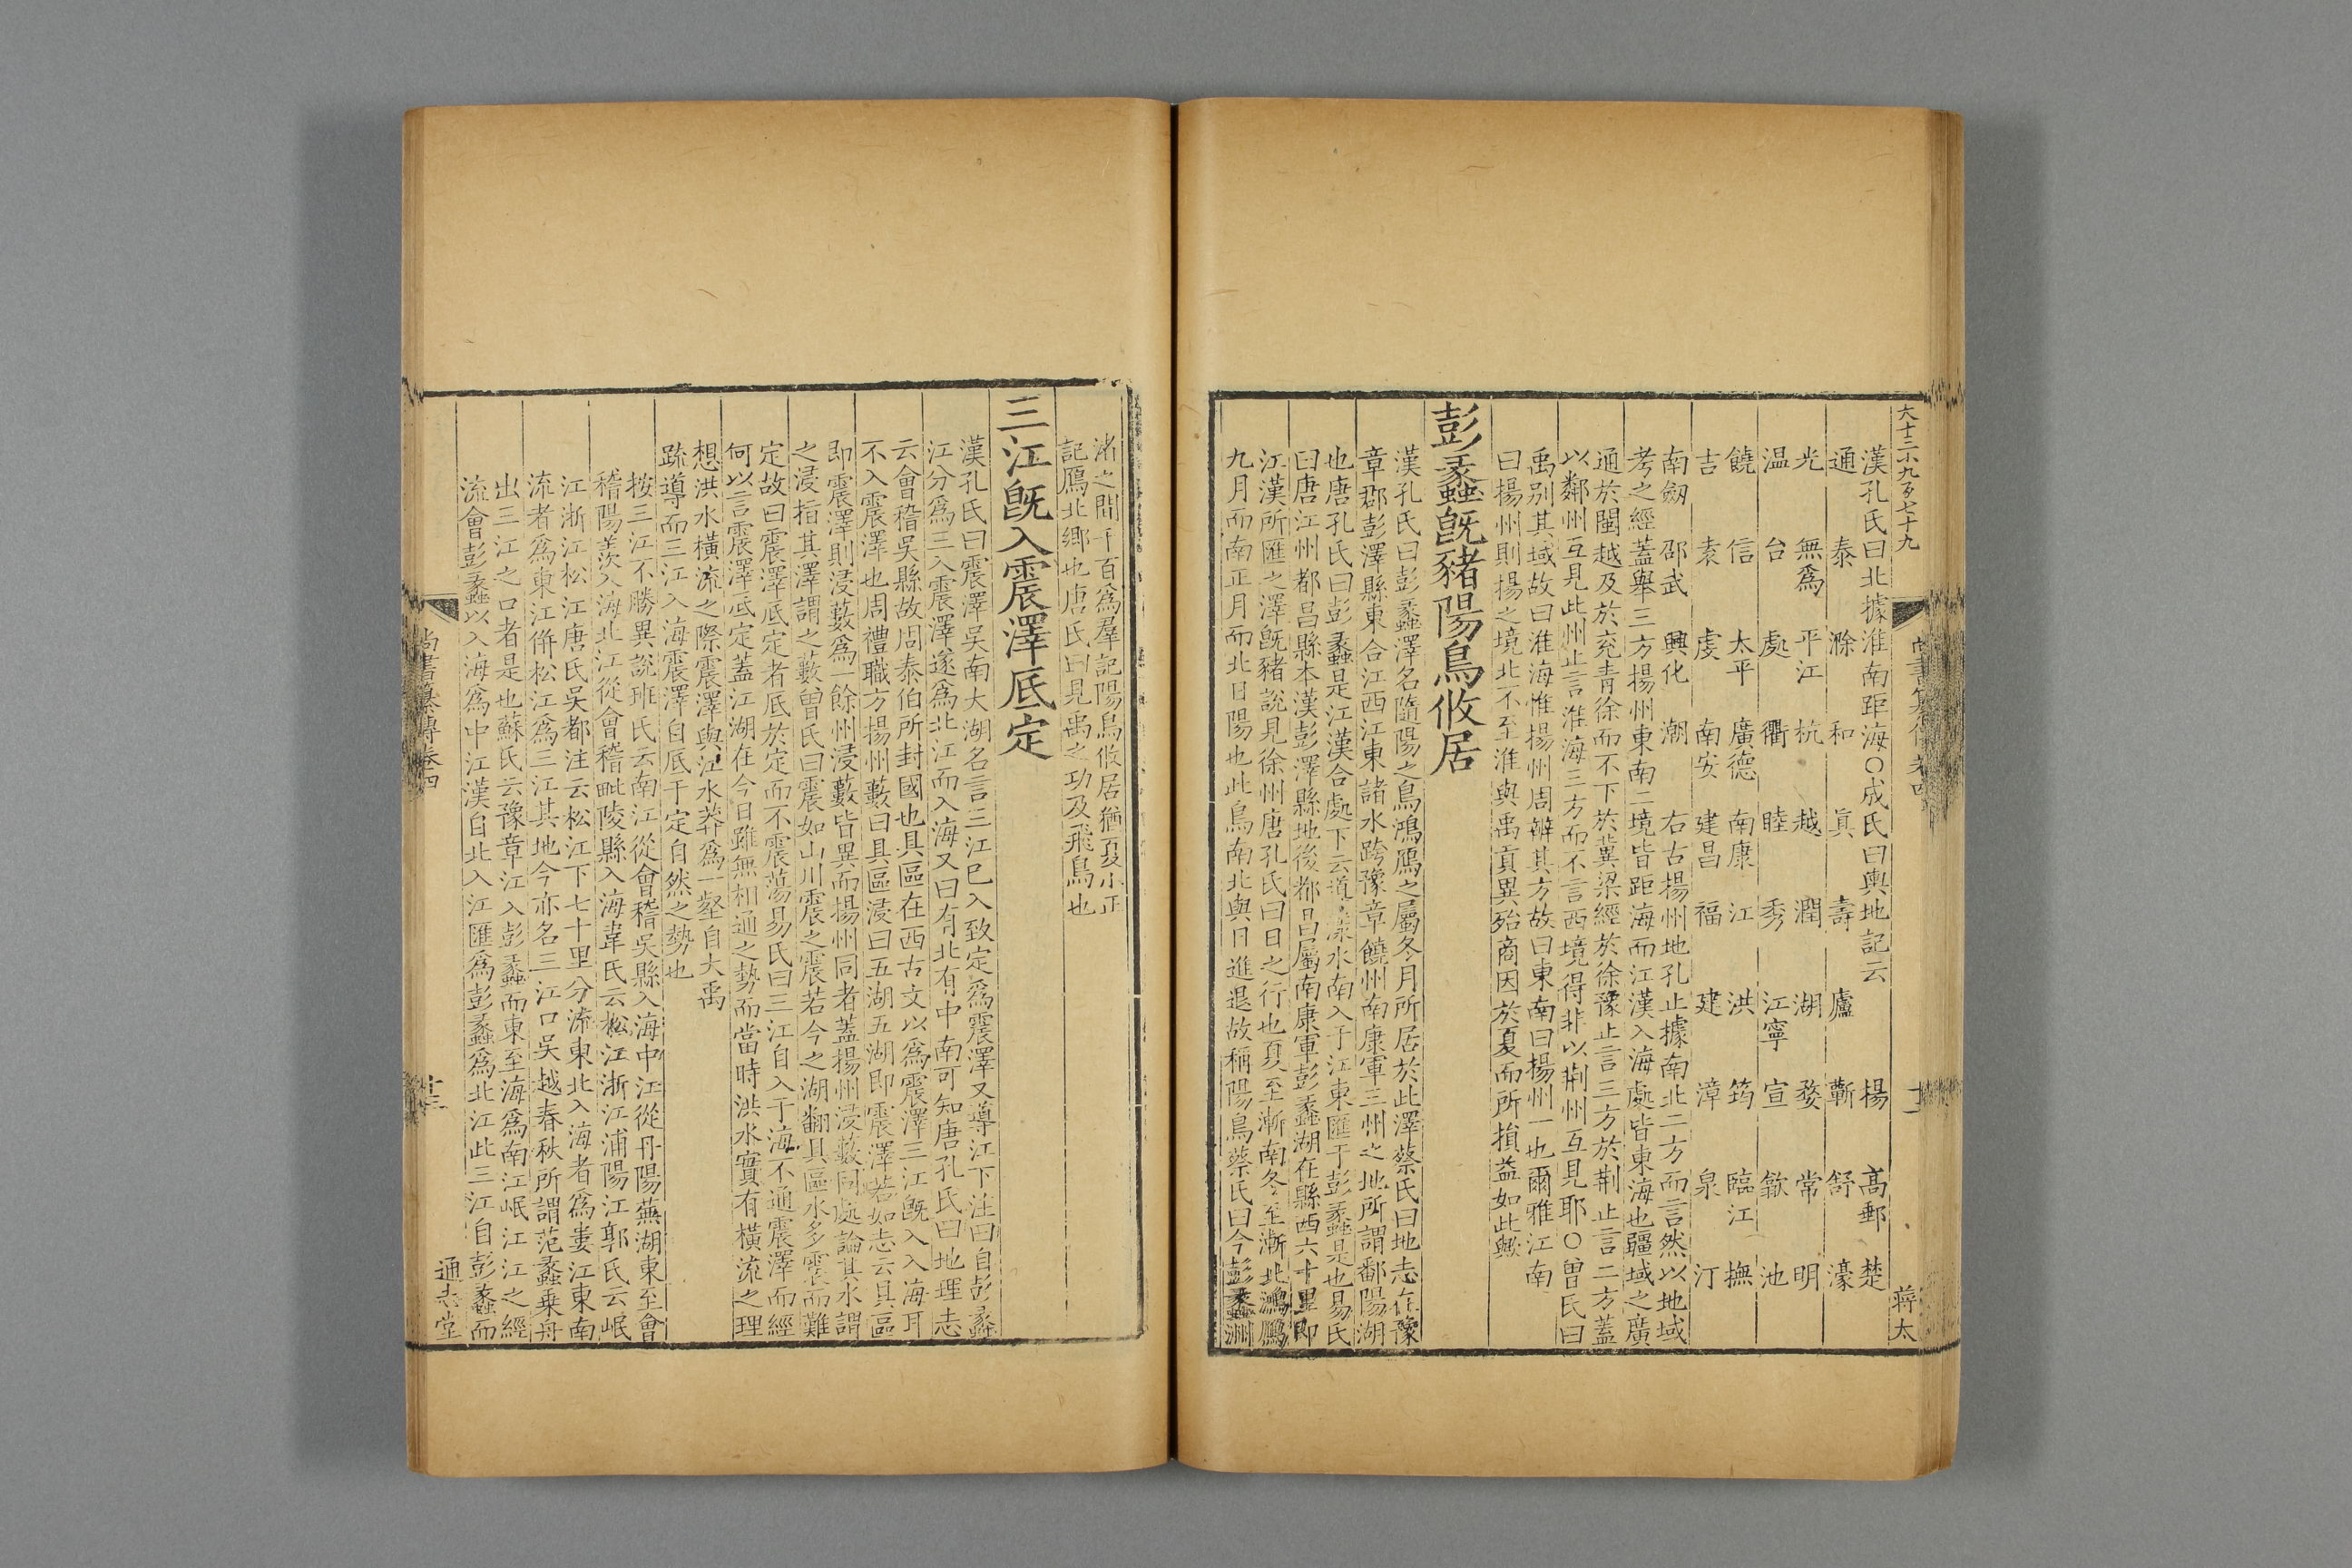 大十二小九百七十九
蔣太
漢孔氏曰北據淮南距海○成氏曰輿地記云 楊 高郵 楚
通 泰 滁 和 眞 壽 廬 蘄 舒 濠
光 無爲 平江 杭 越 潤 湖 婺 常 明
温 台 處 衢 睦 秀 江寧 宣 歙 池
饒 信 太平 廣德 南康 江 洪 筠 臨江 撫
吉 袁 虔 南安 建昌 福 建 漳 泉 汀
南劒 邵武 興化 潮 右古揚州地孔止據南北二方而言然以地域
考之經蓋舉三方揚州東南二境皆距海而江漢入海處皆東海也疆域之廣
通於閩越及於兖青徐而不下於冀梁經於徐豫止言三方於荆止言二方蓋
以鄰州互見此州止言淮海三方而不言西境得非以荆州互見耶○曾氏曰
禹别其域故曰淮海惟揚州周辨其方故曰東南曰揚州一也爾雅江南
曰揚州則揚之境北不至淮與禹貢異殆商因於夏而所損益如此歟
彭蠡旣豬陽鳥攸居
漢孔氏曰彭蠡澤名隨陽之鳥鴻鴈之屬冬月所居於此澤蔡氏曰地志在豫
章郡彭澤縣東合江西江東諸水跨豫章饒州南康軍三州之地所謂鄱陽湖
也唐孔氏曰彭蠡是江漢合處下云道漾水南入于江東匯于彭蠡是也易氏
曰唐江州都昌縣本漢彭澤縣地後都昌屬南康軍彭蠡湖在縣西六十里卽
江漢所匯之澤旣豬說見徐州唐孔氏曰日之行也夏至漸南冬至漸北鴻鴈
九月而南正月而北日陽也此鳥南北與日進退故稱陽鳥蔡氏曰今彭蠡洲
渚之間千百爲羣記陽鳥攸居猶夏小正
記鴈北鄉也唐氏曰見禹之功及飛鳥也
三江旣入震澤厎定
漢孔氏曰震澤吳南大湖名言三江已入致定爲震澤又導江下注曰自彭蠡
江分爲三入震澤遂爲北江而入海又曰有北有中南可知唐孔氏曰地理志
云會稽吳縣故周泰伯所封國也具區在西古文以爲震澤三江旣入入海耳
不入震澤也周禮職方揚州藪曰具區浸曰五湖五湖卽震澤若如志云具區
卽震澤則浸藪爲一餘州浸藪皆異而揚州同者蓋揚州浸藪同處論其水謂
之浸指其澤謂之藪曾氏曰震如山川震之震若今之湖翻具區水多震而難
定故曰震澤厎定者厎於定而不震蕩易氏曰三江自入于海不通震澤而經
何以言震澤厎定蓋江湖在今日雖無相通之勢而當時洪水實有橫流之理
想洪水橫流之際震澤與江水莽爲一壑自大禹
疏導而三江入海震澤自厎于定自然之勢也
按三江不勝異說班氏云南江從會稽吳縣入海中江從丹陽蕪湖東至會
稽陽羨入海北江從會稽毗陵縣入海韋氏云松江浙江浦陽江郭氏云岷
江浙江松江唐氏吳都注云松江下七十里分流東北入海者爲婁江東南
流者爲東江併松江爲三江其地今亦名三江口吳越春秋所謂范蠡乘舟
出三江之口者是也蘇氏云豫章江入彭蠡而東至海爲南江岷江江之經
流會彭蠡以入海爲中江漢自北入江匯爲彭蠡爲北江此三江自彭蠡而
尚書纂傳卷四
十三
通志堂